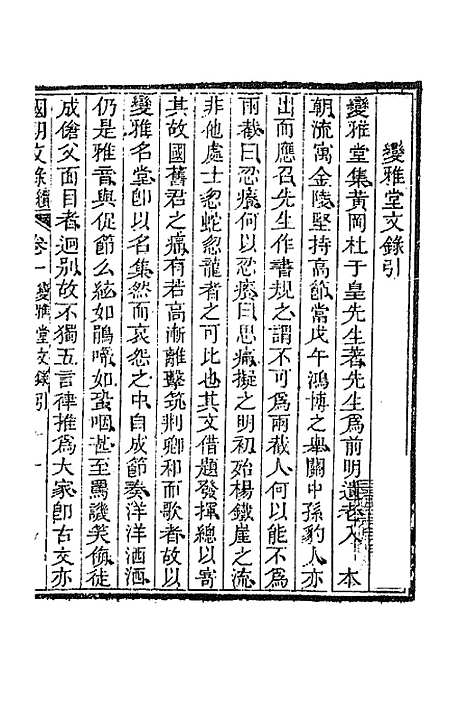 變雅堂文錄引
變雅堂集黃岡杜于皇先生著先生爲前明遺老入本
朝流寓金陵堅持高節當戊午鴻博之舉關中孫豹人亦
出而應召先生作書規之謂不可爲兩截人何以能不爲
兩截曰忍痛何以忍痛曰思痛擬之明初殆楊鐵崖之流
非他處士忽蛇忽龍者之可比也其文借題發揮總以寄
其故國舊君之痛有若高漸離擊筑荆卿和而歌者故以
變雅名堂卽以名集然而哀怨之中自成節奏洋洋洒洒
仍是雅音與促節么絃如鵑啼如蛩咽甚至罵譏笑侮徒
成傖父面目者迥别故不獨五言律推爲大家卽古文亦
國朝文錄續 卷一變雅堂文錄引 一